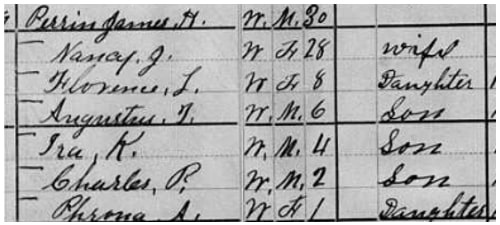 Perrin James, H. W. M. 30
Nancy, J. W F 28 wife
Florence, L. W F 8 Daughter
Augustus, T. W. M. 6 Son
Ira, K. W. M. 4 Son
Charles, P. W. M. 2 Son
Phrona A. W F 1 Daughter